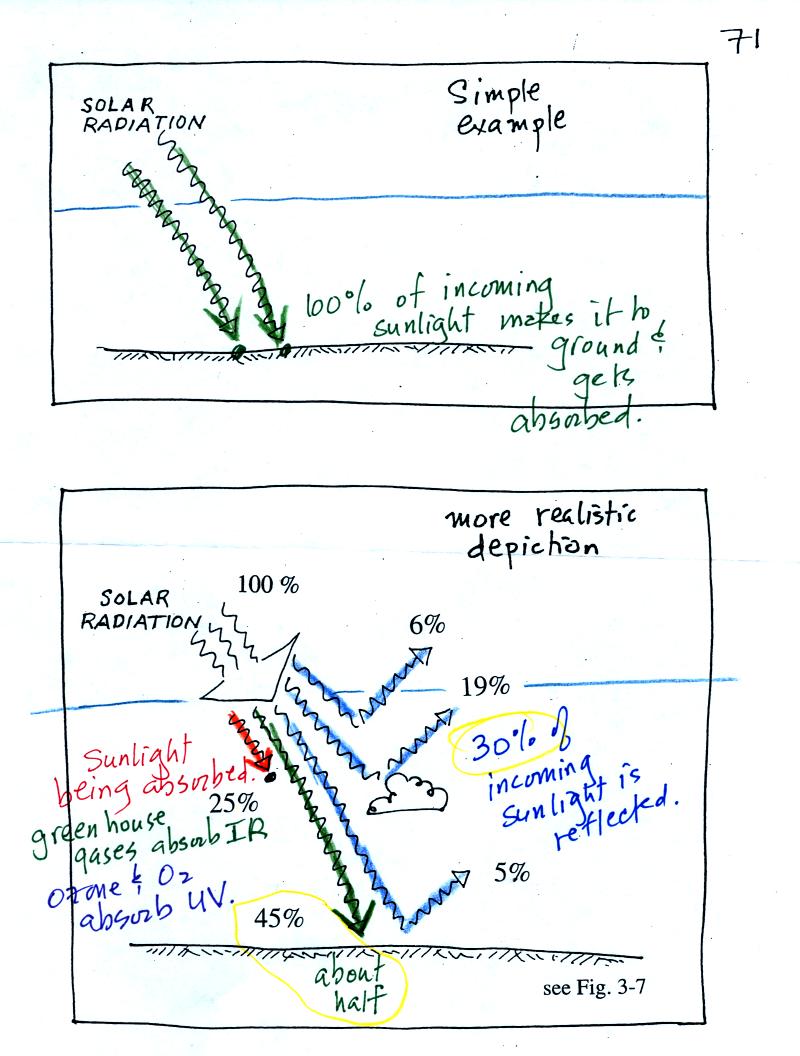 71
SOLAR
RADIATION
Simple
example
100% of incoming
sunlight makes it to
ground &
gets
absorbed.
more realistic
depiction
100 %
SOLAR
RADIATION
6%
19%
30% of
incoming
sunlight is
reflected.
Sunlight
being absorbed.
25%
green house
gases absorb IR
ozone & O2
absorb UV.
5%
45%
about
half
see Fig. 3-7